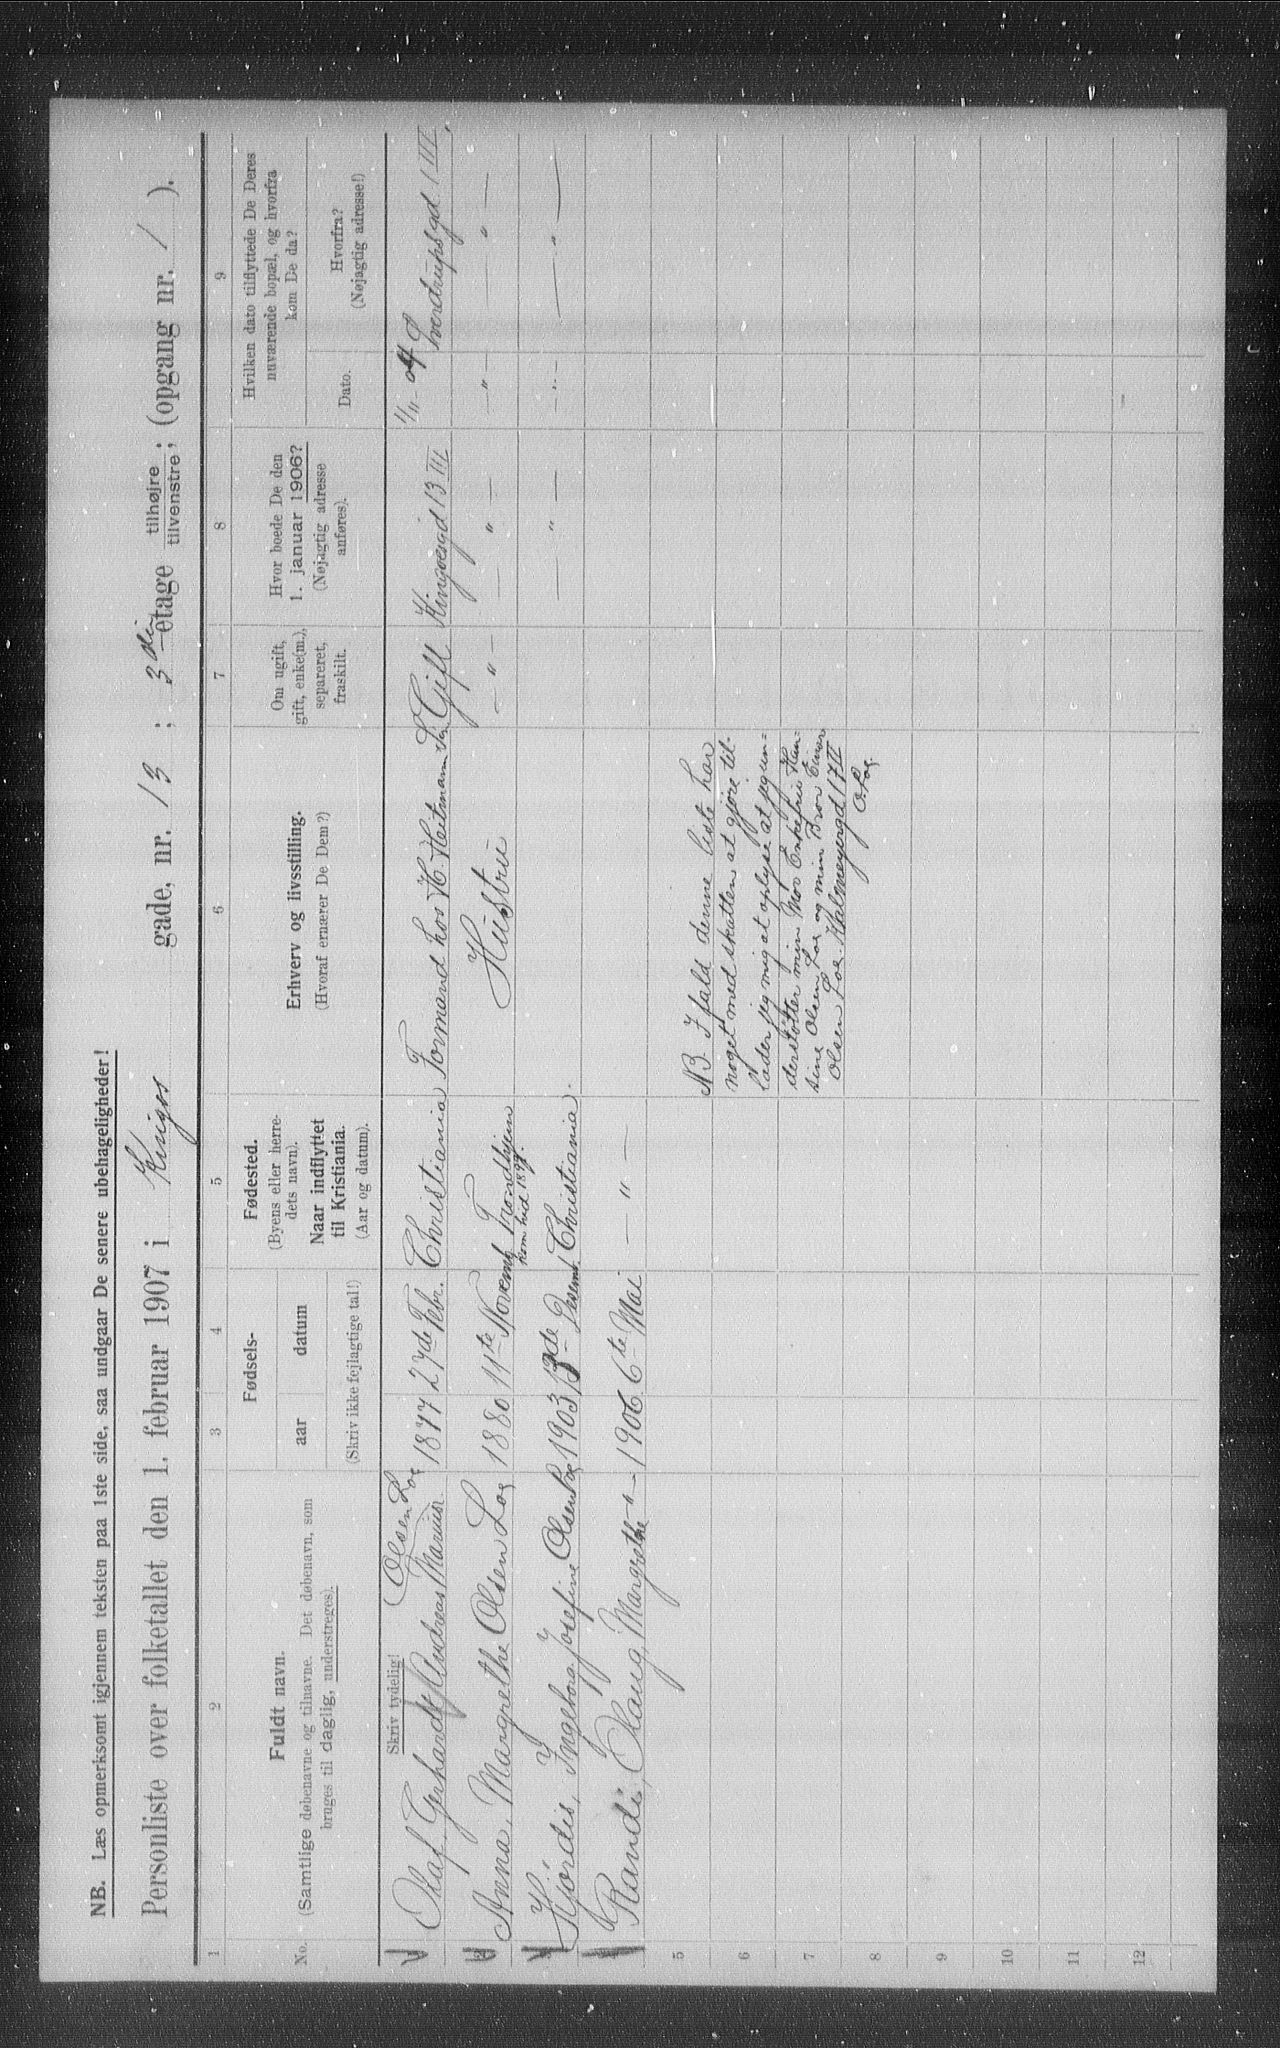 NB. Læs opmerksomt igjennem teksten paa 1ste side, saa undgaar De senere ubehageligheder!
Personliste over folketallet den 1. februar 1907 i Kinges gade, nr. 13 ; 3die etage tilhøjre tilvenstre ; (opgang nr. 1 ).
1 2 3 4 5 6 7 8 9
No.
Fuldt navn.
(Samtlige døbenavne og tilnavne. Det døbenavn, som
bruges til daglig, understreges).
Fødsels-
aar datum
(Skriv ikke fejlagtige tal!)
Fødested.
(Byens eller herre-
dets navn).
Naar indflyttet
til Kristiania.
(Aar og datum).
Erhverv og livsstilling.
(Hvoraf ernærer De Dem?)
Om ugift,
gift, enke(m.),
separeret,
fraskilt.
Hvor boede De den
1. januar 1906?
(Nøjagtig adresse
anføres).
Hvilken dato tilflyttede De Deres
nuværende bopæl, og hvorfra
kom De da?
Dato.
Hvorfra?
(Nøjagtig adresse!)
Skriv tydelig!
Olsen Loe
Olaf, Gerhardt Andreas Marius. 1877 27de Febr. Christiania Formand hos H. Heitmann Gift Kingosgd 13 III 1/11-04 Sverdrupsgd 1 III
Anna, Margrethe Olsen Loe 1880 11te Novemb. Trondhjem Hustru — " — — " — — " — — " —
kom hid 1897.
Hjördis, Ingeborg Josefine Olsen Loe 1903 Desemb. Christiania. — " — — " — — " —
Randi, Olaug, Margrethe — " — 1906 6te Mai — " —
5
6
7
8
9
10
11
12
NB. I fald denne liste har
noget med skatten at gjöre til-
lader jeg mig at oplyse at jeg un=
derstötter min Mor Enkefru Han=
sine Olsen Loe og min Bror Einar
Olsen Loe. Halmeyersgd 17 II
O. Loe